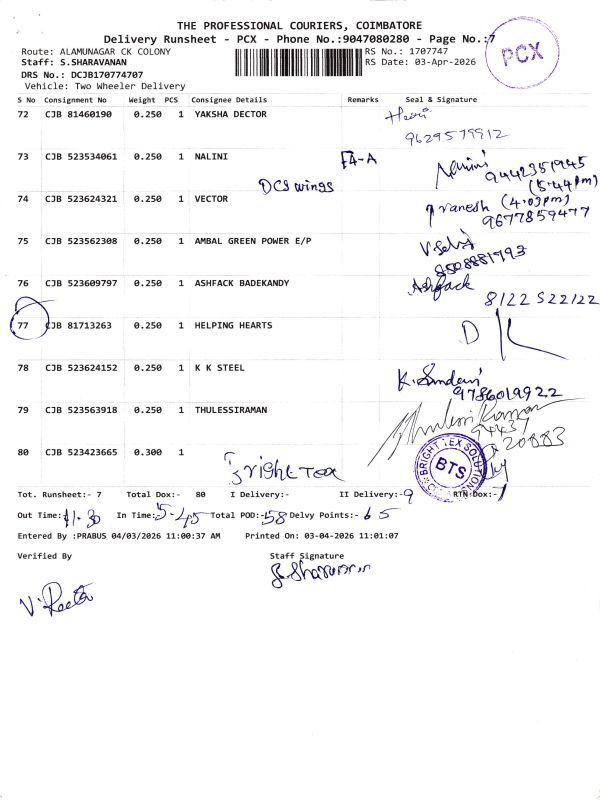 THE PROFESSIONAL COURIERS, COIMBATORE
Delivery Runsheet - PCX - Phone No.:9047080280 - Page No.:7
PCX
Route: ALAMUNAGAR CK COLONY
RS No.: 1707747
Staff: S.SHARAVANAN
RS Date: 03-Apr-2026
DRS No.: DCJB170774707
Vehicle: Two Wheeler Delivery
S No Consignment No Weight PCS Consignee Details Remarks Seal & Signature
72 CJB 81460190 0.250 1 YAKSHA DECTOR
9629579912
73 CJB 523534061 0.250 1 NALINI F4-A Nalini 9442351945
(5:44pm)
DCS wings
74 CJB 523624321 0.250 1 VECTOR Pranesh (4:03pm)
9677859477
75 CJB 523562308 0.250 1 AMBAL GREEN POWER E/P V.Selvi
8508881793
76 CJB 523609797 0.250 1 ASHFACK BADEKANDY Ashfack
8122522122
77 CJB 81713263 0.250 1 HELPING HEARTS
78 CJB 523624152 0.250 1 K K STEEL
9786019922
79 CJB 523563918 0.250 1 THULESSIRAMAN Thulessi Raman
94437
20883
80 CJB 523423665 0.300 1
Bright Tex
BRIGHT TEX SOLUTIONS
BTS
Tot. Runsheet:- 7 Total Dox:- 80 I Delivery:- II Delivery:-9 RTN Dox:-7
Out Time:11.30 In Time:5.45 Total POD:-58 Delvy Points:-65
Entered By :PRABUS 04/03/2026 11:00:37 AM Printed On: 03-04-2026 11:01:07
Verified By Staff Signature
S.Sharavanan
V.Reeta